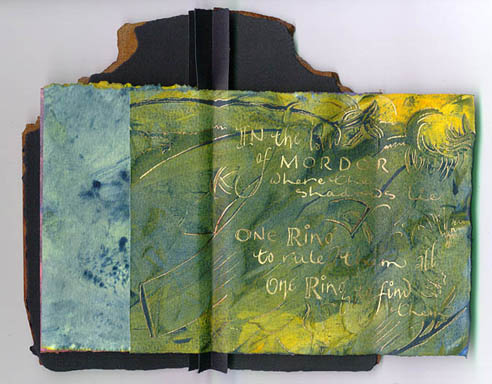 IN the land
of MORDOR
where the
shadows lie
ONE Ring
to rule them all
One Ring to find
them